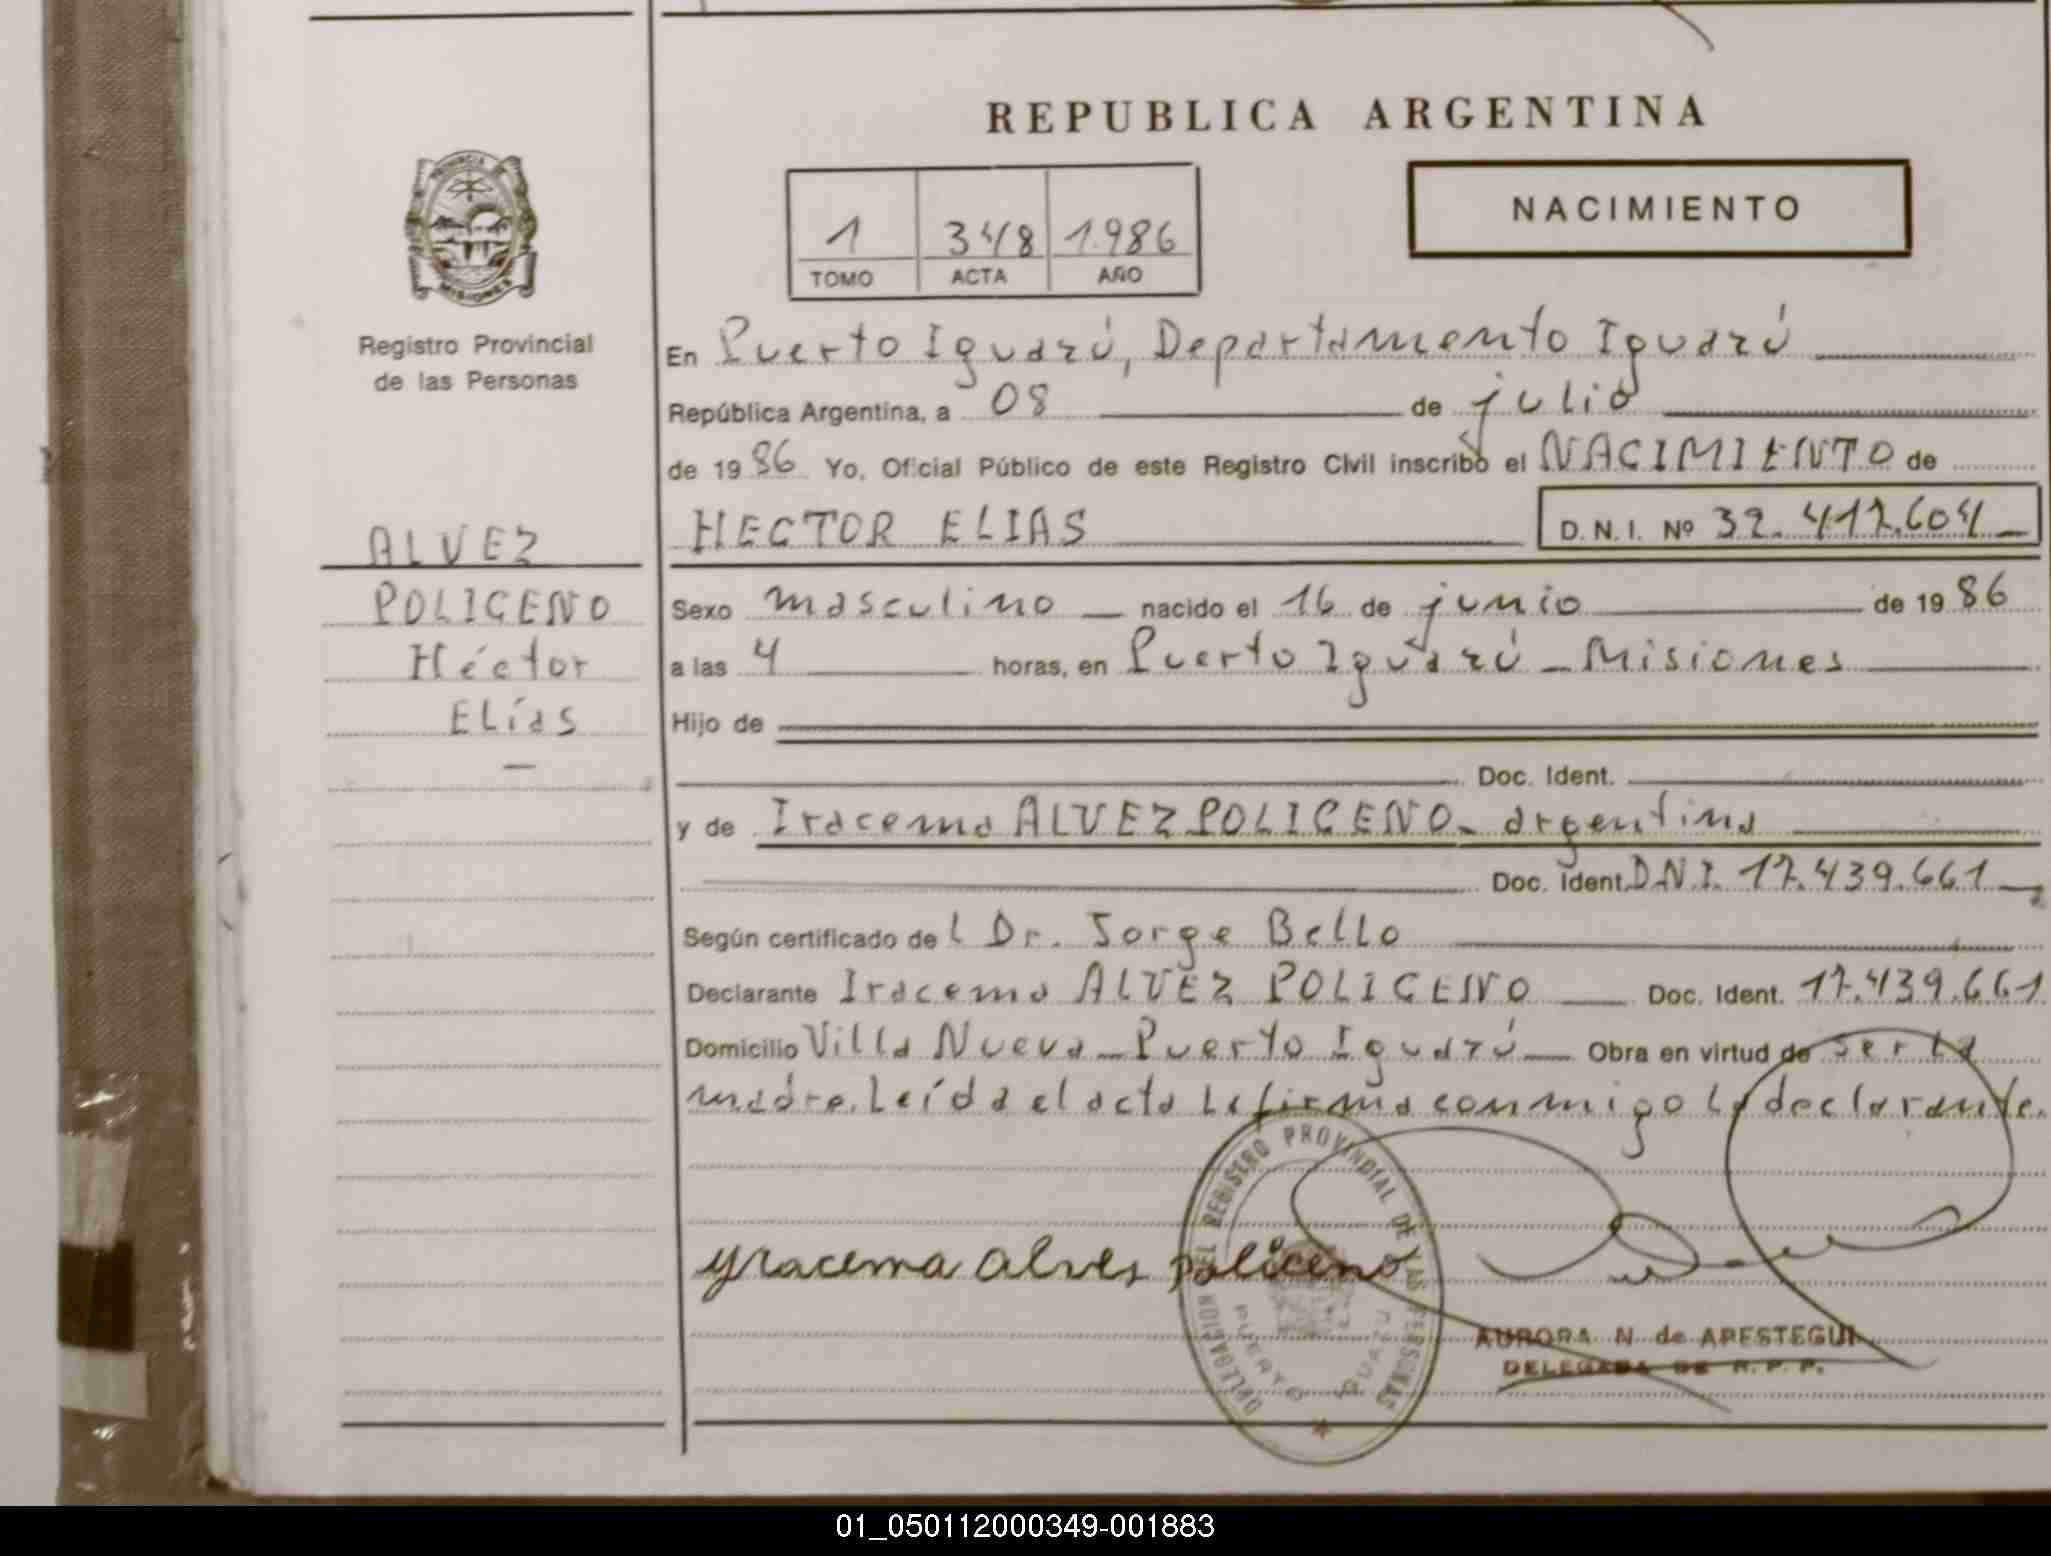 REPUBLICA ARGENTINA
PROVINCIA DE
MISIONES
Registro Provincial
de las Personas
NACIMIENTO
1 348 1.986
TOMO ACTA AÑO
En Puerto Iguazú, Departamento Iguazú
República Argentina, a 08 de julio
de 1986 Yo, Oficial Público de este Registro Civil inscribo el NACIMIENTO de
HECTOR ELIAS D.N.I. Nº 32.417.604
ALVEZ
POLICENO
Héctor
ELías
Sexo masculino nacido el 16 de junio de 1986
a las 4 horas, en Puerto Iguazú - Misiones
Hijo de
Doc. Ident.
y de Iracema ALVEZ POLICENO - argentina
Doc. Ident. D.N.I. 17.439.661
Según certificado del Dr. Jorge Bello
Declarante Iracema ALVEZ POLICENO Doc. Ident. 17.439.661
Domicilio Villa Nueva - Puerto Iguazú Obra en virtud de ser la
madre. Leída el acta la firma conmigo la declarante.
yracema alves policeno
DELEGACION DEL REGISTRO PROVINCIAL DE LAS PERSONAS
PUERTO IGUAZU
AURORA N. de APESTEGUI
DELEGADA DE R. P. P.
01_050112000349-001883